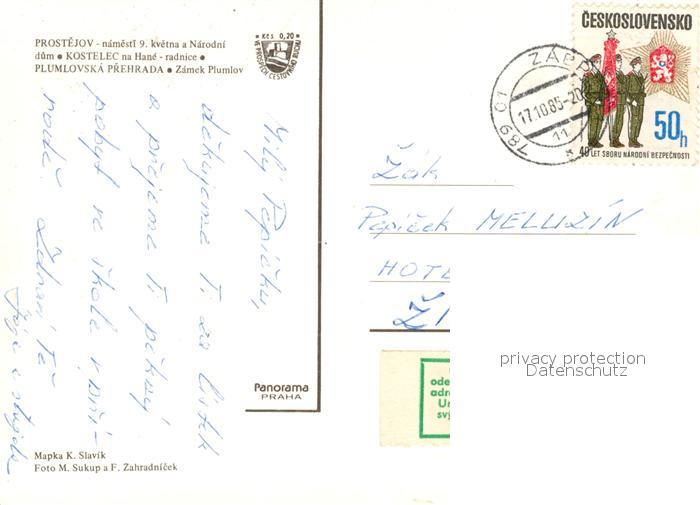 PROSTĚJOV - náměstí 9. května a Národní
dům • KOSTELEC na Hané - radnice •
PLUMLOVSKÁ PŘEHRADA • Zámek Plumlov
Kčs 0,20
VE PROSPĚCH CESTOVNÍHO RUCHU
Milý Pepíčku,
děkujeme Ti za lístek
a přejeme Ti pěkný
pobyt ve škole v pří-
rodě. Zdraví Tě
Panorama
PRAHA
Mapka K. Slavík
Foto M. Sukup a F. Zahradníček
ČESKOSLOVENSKO
50h
40 LET SBORU NÁRODNÍ BEZPEČNOSTI
17.10.85-20
789 01 ZÁB
Žák
Pepíček MELUZÍN
HOTE
privacy protection
Datenschutz
ode
adre
Ur
svý